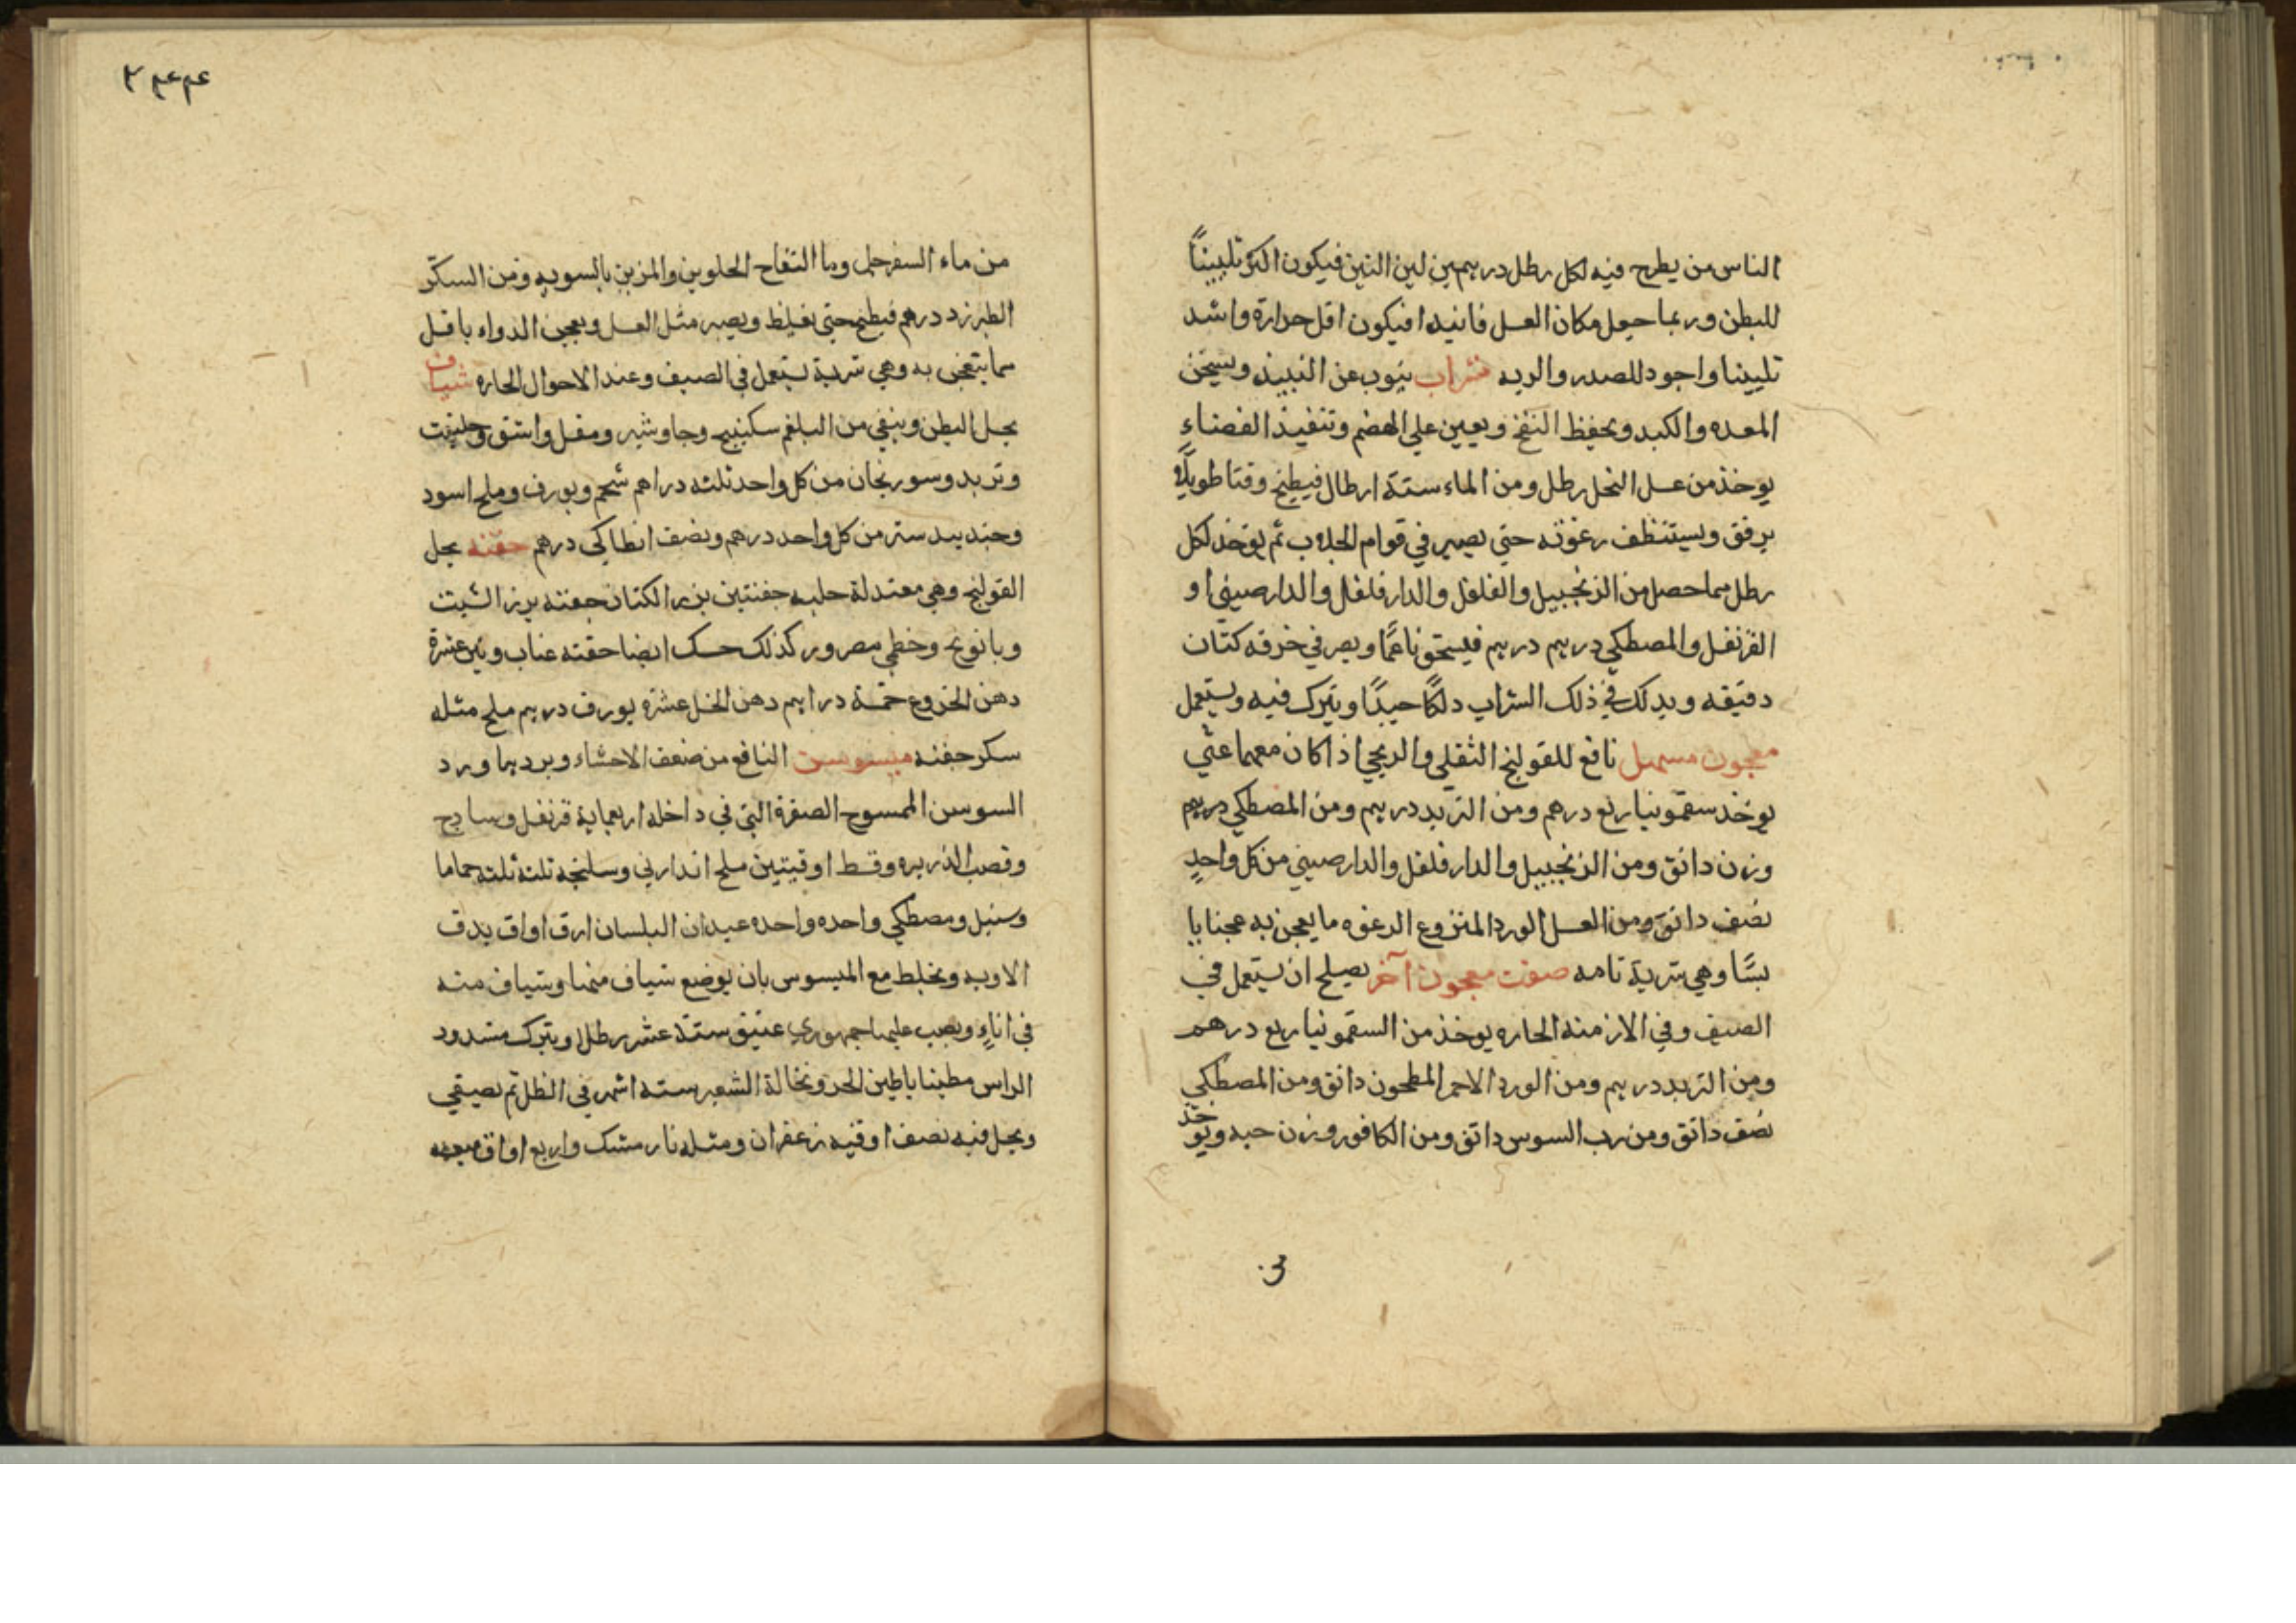 الناس من يطرح فيه لكل رطل درهمين لبن التين فيكون اكثر تلييناً
للبطن وربما جعل مكان العسل فانيدا فيكون اقل حرارة واشد
تليينا واجود للصدر والريه شراب ينوب عن النبيذ ويسخن
المعده والكبد ويحفظ النفخ ويعين على الهضم وتنفيذ الغضاء
يوخذ من عسل النحل رطل ومن الماء ستة ارطال فيطبخ وقتا طويلًا
برفق ويستنظف رغوته حتى يصير في قوام الجلاب ثم يوخذ لكل
رطل مما حصل من الزنجبيل والفلفل والدارفلفل والدارصيني او
القرنفل والمصطكي درهم درهم فيسحق ناعمًا ويصر في خرقه كتان
دقيقه ويدلك في ذلك الشراب دلكًا جيدًا ويترك فيه ويستعمل
معجون مسهل نافع للقولنج الثقلي والريحي اذا كان معهما غثي
يوخذ سقمونيا ربع درهم ومن التربد درهم ومن المصطكي درهم
وزن دانق ومن الزنجبيل والدارفلفل والدارصيني من كل واحدٍ
نصف دانق ومن العسل الورد المنزوع الرغوه ما يعجن به عجنا يا
بسًا وهي شربة تامه صفت معجون آخر يصلح ان يستعمل في
الصيف وفي الازمنه الحاره يوخذ من السقمونيا ربع درهم
ومن التربد درهم ومن الورد الاحمر المطحون دانق ومن المصطكي
نصف دانق ومن رب السوس دانق ومن الكافور وزن حبه ويوخذ
٣٠
٣٤٤
من ماء السفرجل وما التفاح الحلوين والمزين بالسويه ومن السكر
الطبرزد درهم فيطبخ حتى يغليظ ويصير مثل العسل ويعجن الدواء باقل
مما يتعجن به وهي شربة يستعمل في الصيف وعند الاحوال الحاره شياف
يحل البطن وينقي من البلغم سكبينج وجاوشير ومقل واشق وحلتيت
وتربد وسورنجان من كل واحد ثلثه دراهم شحم وبورق وملح اسود
وجندبيدستر من كل واحد درهم ونصف انطاكي درهم حقنه يحل
القولنج وهي معتدلة حلبه حفنتين بزر الكتان حفنه بزر الشبت
وبابونج وخطمي مصرور كذلك حسك ايضا حفنه عناب وتين عشرة
دهن الخروع خمسة دراهم دهن الخل عشره بورق درهم ملح مثله
سكر حفنه ميسوسن النافع من ضعف الاحشاء وبردها ورد
السوسن الممسوح الصفرة التي في داخله اربعماية قرنفل وسادج
وقصب الذريره وقسط اوقيتين ملح اندارني وسليخه ثلثه ثلثه حماما
وسنبل ومصطكي واحده واحده عيدان البلسان ارق اواق يدق
الاويه ويخلط مع الميسوس بان يوضع شياف منها وشياف منه
في اناءٍ ويصب عليها جمهوري عتيق ستة عشر رطلا ويترك مسدود
الراس مطينا باطين الحر ونخالة الشعير سته اشهر في الظل ثم يصيقى
ويجل فيه نصف اوقيه زعفران ومثله نار مشك واربع اواق ميعه